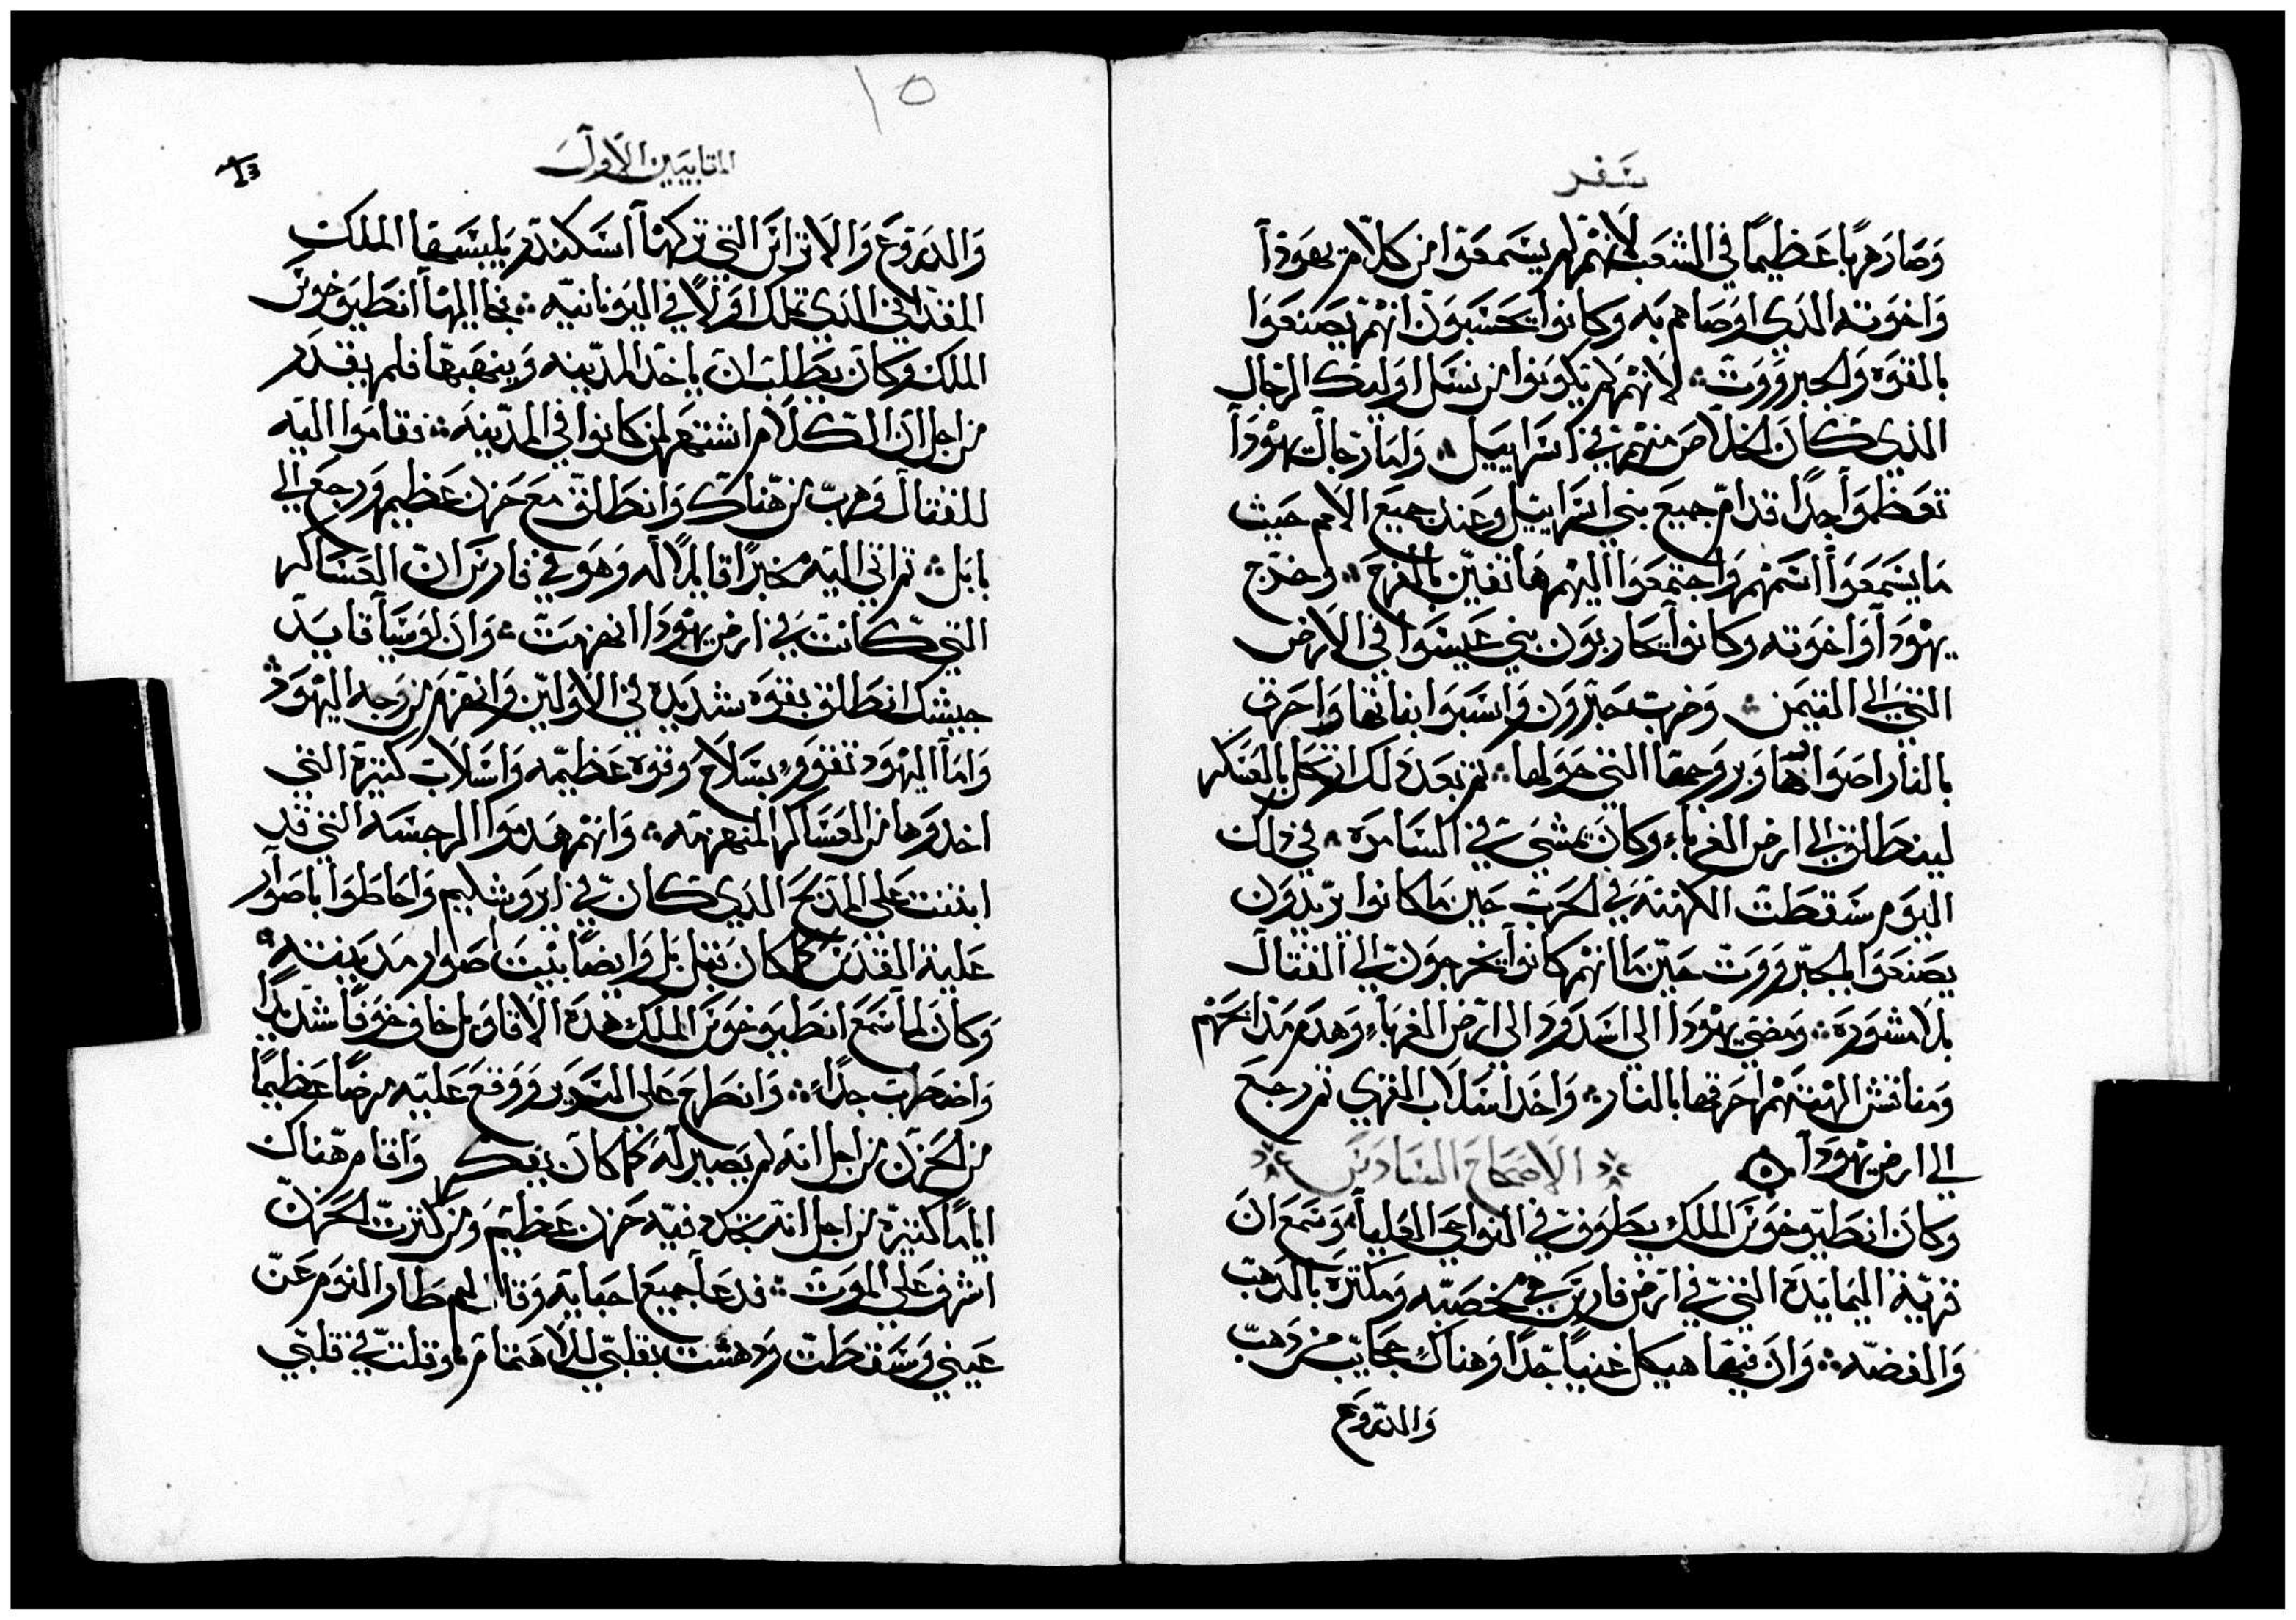 سفر
وصار هربا عظيما في الشعب لانهم لم يسمعوا من كلام يهودا
واخوته الدي اوصاهم به وكانوا يحسبون انهم يصنعوا
بالقوه والجبرووت لانهم لم يكونوا من نسل اوليك الرجال
الذي كان الخلاص منهم في اسراييل واما رجال يهودا
تعظموا جدا قدام جميع بني اسراييل وعند جميع الامم حيث
ما يسمعوا اسمهم واجتمعوا اليهم هاتفين بالفرح وخرج
يهودا واخوته وكانوا يحاربون بني عيسوا في الارض
التي الي التيمن وضرب حبرون واسبوا بناتها واحرق
بالنار اصوارها وبروجها التي حولها ثم بعد دلك ارتحل بالعسكر
لينطالق الي ارض الغرباء وكان يمشي في السامره في دلك
اليوم سقطت الكهنة في الحرب حين ما كانوا يريدون
يصنعوا بالجبرووت حين ما انهم كانوا يخرجون الي القتال
بلا مشوره ومضي يهودا الي اسدود الى ارض الغرباء وهدم مدابحهم
ومناقش الهتهم احرقها بالنار واخد اسلاب القري ثم رجع
الي ارض يهودا الاصحاح السادس
وكان انطيوخوس الملك يطوف في النواحي العليا وسمع ان
قرية اليمايدة التي في ارض فارس هي مخصبه ومكثره بالدهب
والفضه وان فيها هيكل غنيا جدا وهناك عجايب من دهب
والدروع
١٥
المقابيين الاول
13
والدروع والاتراس التي تركها اسكندر بليبسها الملك
المقداني الدي تملك اولا في اليونانيه فجا اليها انطيوخوس
الملك وكان يطلب ان ياخد المدينه وينهبها فلم يقدر
من اجل ان الكلام اشتهر لمن كانوا في المدينه فقاموا اليه
للقتال وهرب من هناك وانطالق مع حزن عظيم ورجع الي
بابل ثم اتي اليه مخبرا قايلا له وهو في فارس ان العساكر
التي كانت في ارض يهودا انهزمت وان لوسيا قايد
جيشك انطالق بقوه شديده في الاولين وانهزم من وجه اليهود
واما اليهود تقوو بسلاح وقوه عظيمه واسلاب كثيرة التي
اخدوها من العساكر المنهزمه وانهم هدموا الرجسه التي قد
ابتنت علي المدبح الدي كان في ايروشليم واحاطوا باصوار
علية المقدس كما كان قبل بل وايضا بيت صوار مدينته
وكان لما سمع انطيوخوس الملك هده الاقاويل خاف خوفا شديدا
واضطرب جدا وانطرح على السرير ووقع عليه مرضا عظيما
من الحزن من اجل انه لم يصير له كما كان يفكر واقام هناك
اياما كثيرة من اجل انه تجدد فيه حزن عظيم ومن كثرت الحزن
اشرف علي الموت فدعا جميع احبايه وقال لهم طار النوم عن
عيني وسقطت ودهشت بقلبي للاهتمام وقلت في قلبي